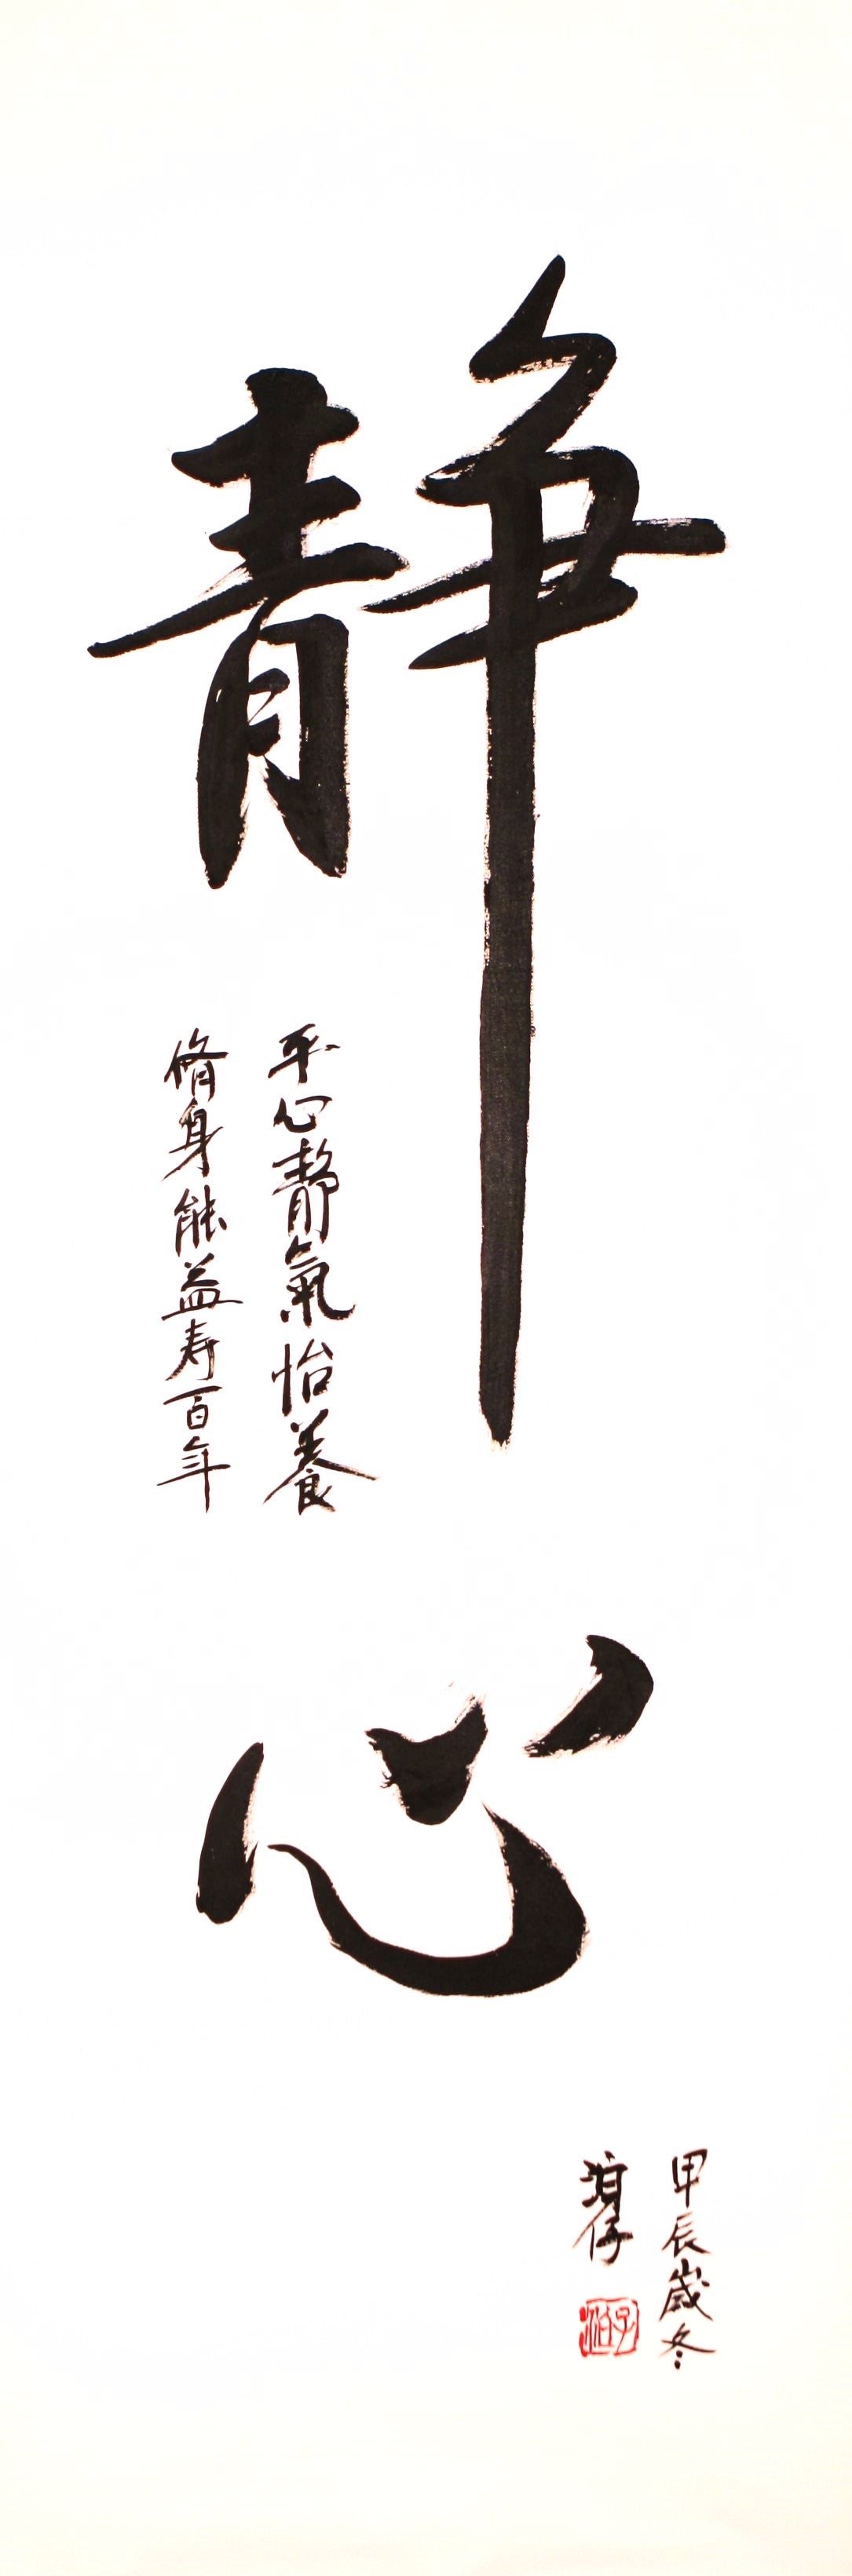 静心
平心靜氣怡養
脩身能益寿百年
甲辰歲冬